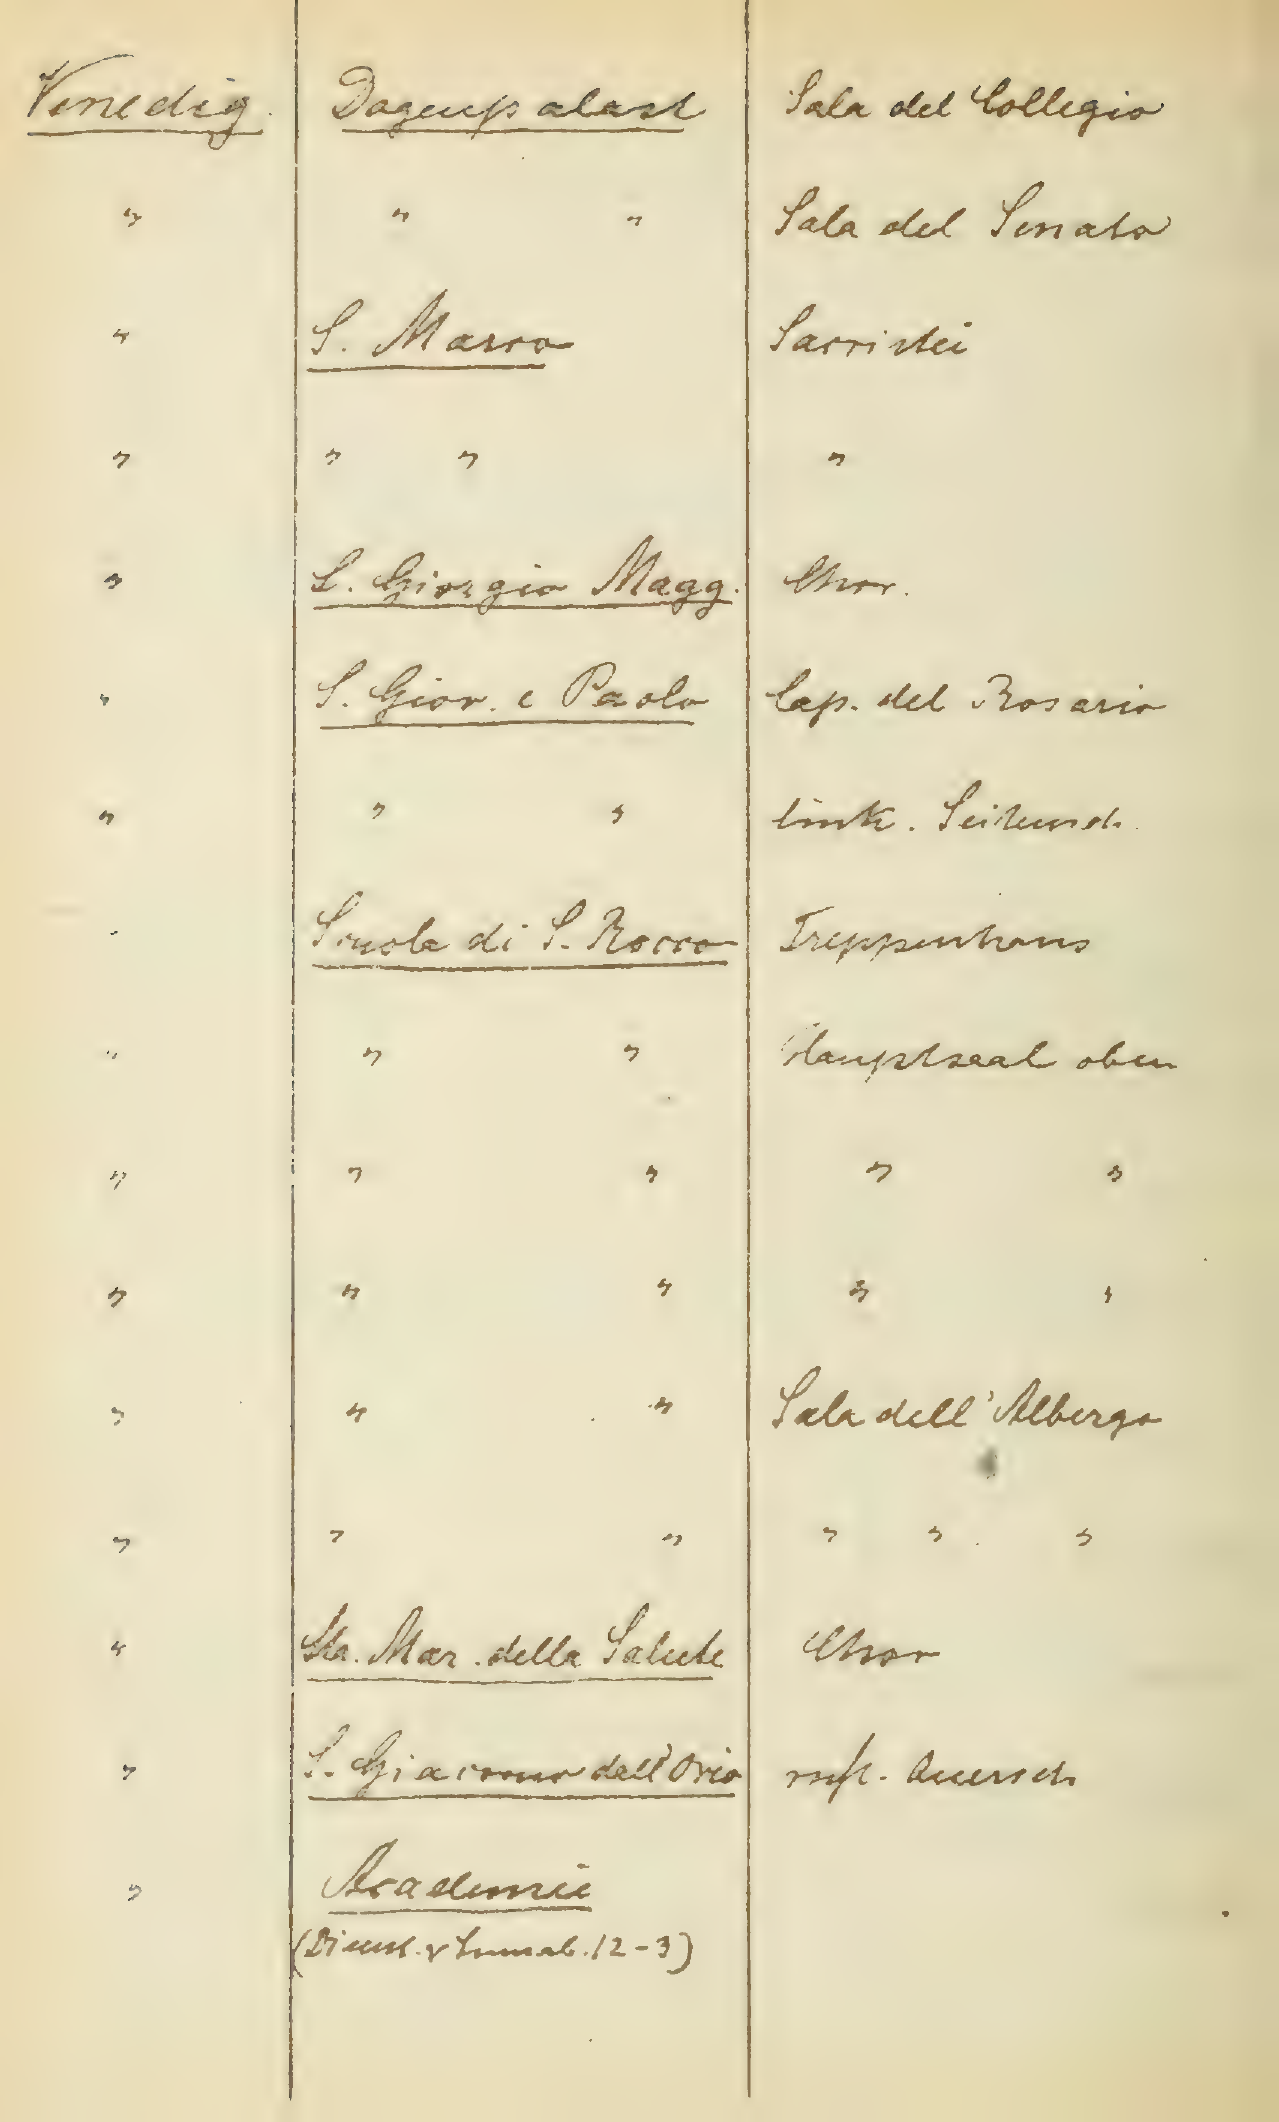 Venedig. Dogenpalast Sala del Collegio
" " " Sala del Senato
" S. Marco Sacristei
" " " "
" S. Giorgio Magg. Chor.
" S. Giov. e Paolo Cap. del Rosario
" " " link. Seitensch.
" Scuola di S. Rocco Treppenhaus
" " " Hauptsaal oben
" " " " "
" " " " "
" " " Sala dell' Albergo
" " " " " "
" Sta. Mar. della Salute Chor
" S. Giacomo dell' Orio Quersch.
" Academie
(Dienst. & 12-3)